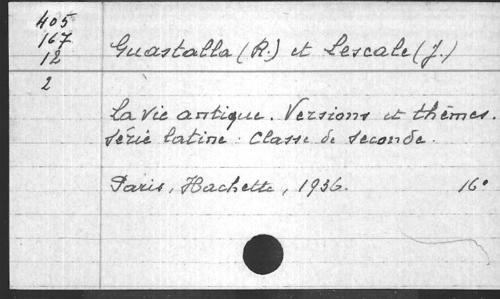 405
167
12
2
Guastalla (R.) et Lescale (J.)
La vie antique. Versions et thèmes.
Série latine : Classe de seconde.
Paris, Hachette, 1936. 16°